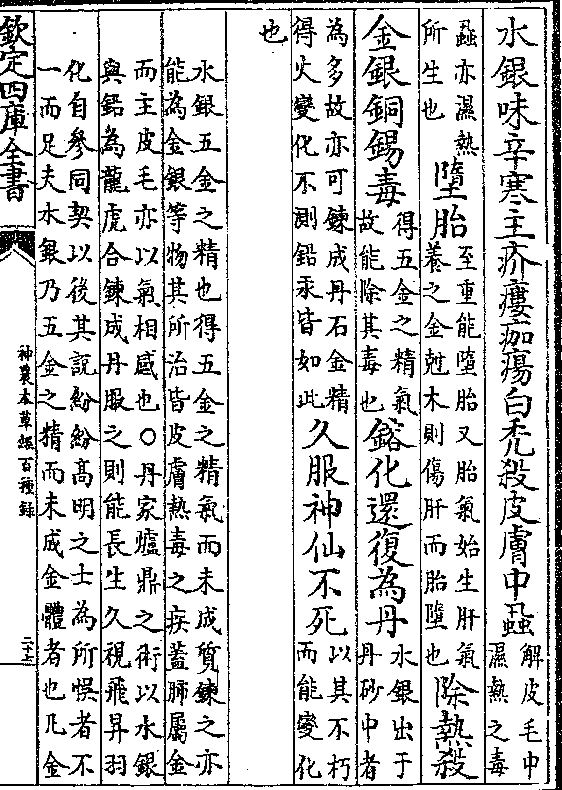 水銀味辛寒主疥瘻痂瘍白秃殺皮膚中蝨解皮毛中濕熱之毒
蝨亦濕熱所生也墮胎至重能墮胎又胎氣始生肝氣養之金尅木則傷肝而胎墮也除熱殺
金銀銅錫毒得五金之精氣故能除其毒也鎔化還復為丹水銀出于丹砂中者
為多故亦可鍊成丹石金精得火變化不測鉛汞皆如此久服神仙不死以其不朽而能變化
也
水銀五金之精也得五金之精氣而未成質鍊之亦
能為金銀等物其所治皆皮膚熱毒之疾蓋肺屬金
而主皮毛亦以氣相感也〇丹家爐鼎之術以水銀
與鉛為龍虎合鍊成丹服之則能長生久視飛昇羽
化自參同契以後其說紛紛高明之士為所悞者不
一而足夫水銀乃五金之精而未成金體者也凡金
欽定四庫全書
神農本草經百種錄